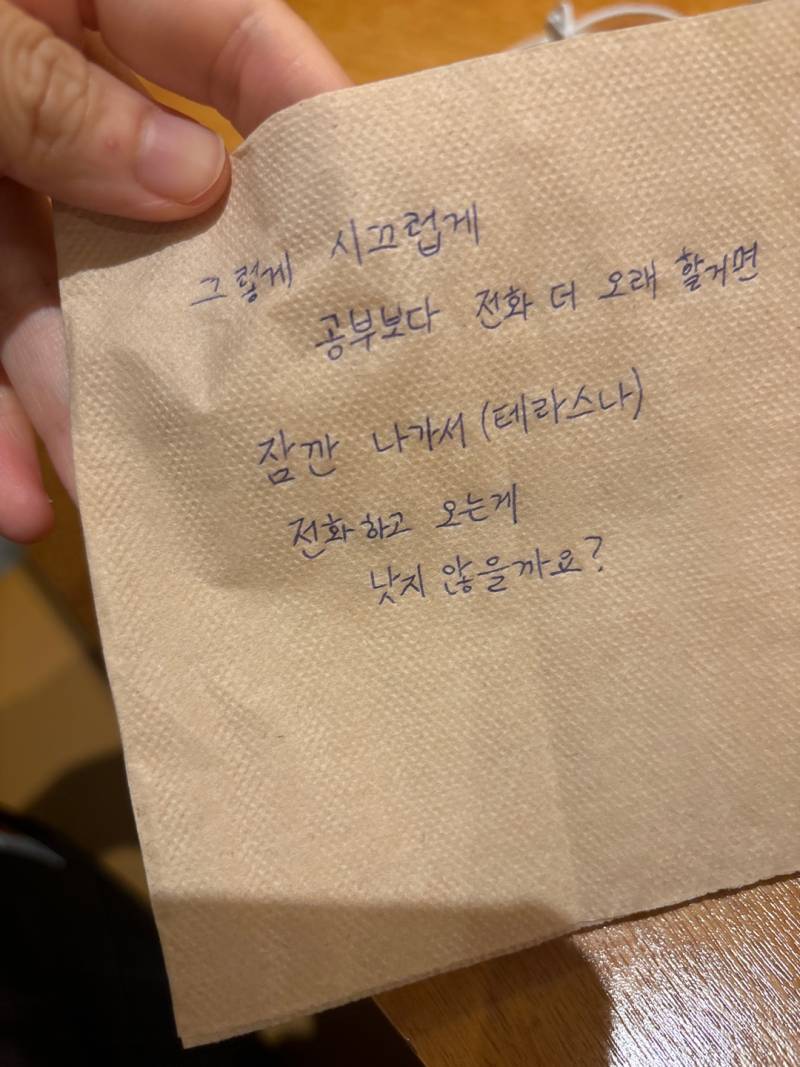 그렇게 시끄럽게
공부보다 전화 더 오래 할거면
잠깐 나가서 (테라스나)
전화하고 오는게
낫지 않을까요?